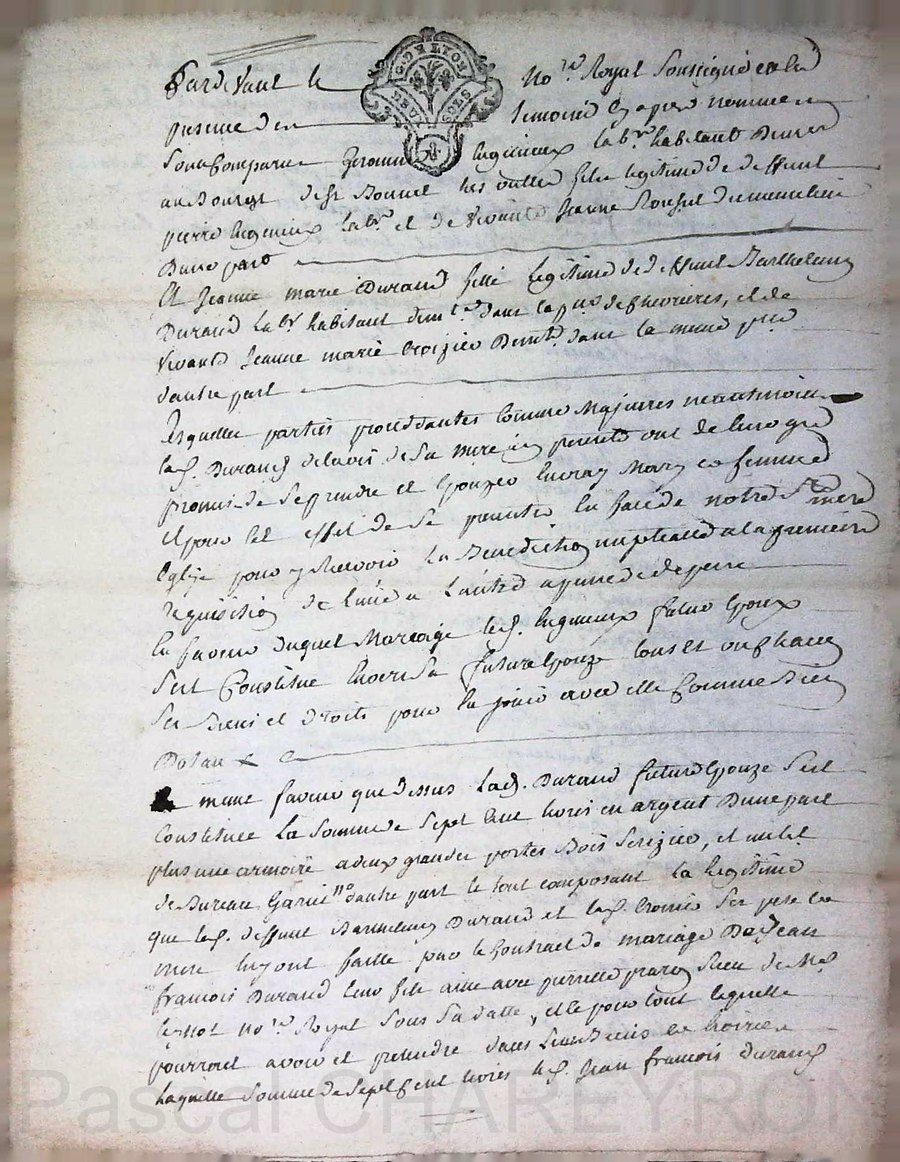 Pardevant le no.re Royal soussigné et en
presence des temoins cy apres nommes
sont comparus Jerome hugonieux lab.r habitant
au Bourg de st Bonnet les oulles fils legitime de deffunt
pierre hugonieux lab.r et de vivante Jeanne
D'une part
Et Jeanne marie Durand fille legitime de deffunt Barthelemy
Durand lab.r habitant dem.t dans la p.sse de chevrieres, et de
vivante Jeanne marie Croizier Dem.te dans la meme p.sse
d'autre part
Lesquelles parties procedantes comme Majeures neantmoins
lad. Durand de l'avis de sa mere icy presente ont de leur gré
promis de se prendre et Epouzer en vray Mary et femme
et pour cet effet de se presenter en face de notre S.te mere
Eglize pour y recevoir la Benediction nuptialle a la premiere
requisition de l'une a l'autre a peine de depens
En faveur duquel Mariage led. hugonieux futur Epoux
s'est Constitué envers sa future Epouze tous et un chacun
ses Biens et droits pour en jouir avec elle comme Biens
Dotaux
meme faveur que dessus lad. Durand future Epouze s'est
Constituée la somme de sept cent livres en argent D'une part
plus une armoire a deux grandes portes Bois serizier, et un lit
de Bureau Garni d'autre part le tout composant la legitime
que led. deffunt Barthelemy Durand et lad. Croizier ses pere et
mere luy ont faitte par le Contract de mariage De Jean
francois Durand leur fils ainé avec pierrette recu de M.e
no.re Royal sous sa datte, elle pour tout laquelle
pourroit avoir et pretendre dans leurs Biens et hoiries
Laquelle somme de sept Cent livres led. Jean francois durand
Pascal CHAREYRON